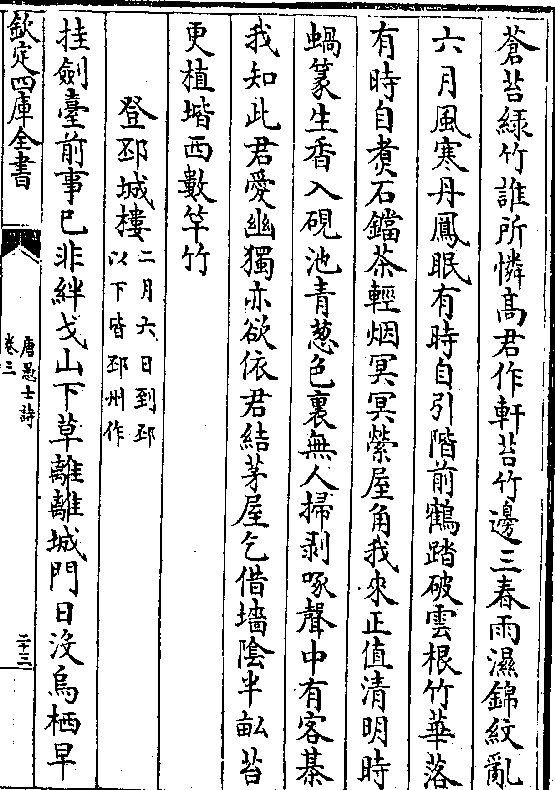 蒼苔緑竹誰所憐高君作軒苔竹邊三春雨濕錦紋亂
六月風寒丹鳳眠有時自引階前鶴踏破雲根竹華落
有時自煑石鐺茶輕烟冥冥縈屋角我來正值清明時
蝸篆生香入硯池青葱色裏無人掃剥啄聲中有客棊
我知此君愛幽獨亦欲依君結茅屋乞借墻陰半畝苔
更植堦西數竿竹
登邳城樓二月六日到邳以下皆邳州作
挂劍臺前事已非絆戈山下草離離城門日没烏栖早
欽定四庫全書
唐愚士詩
卷三
二十三